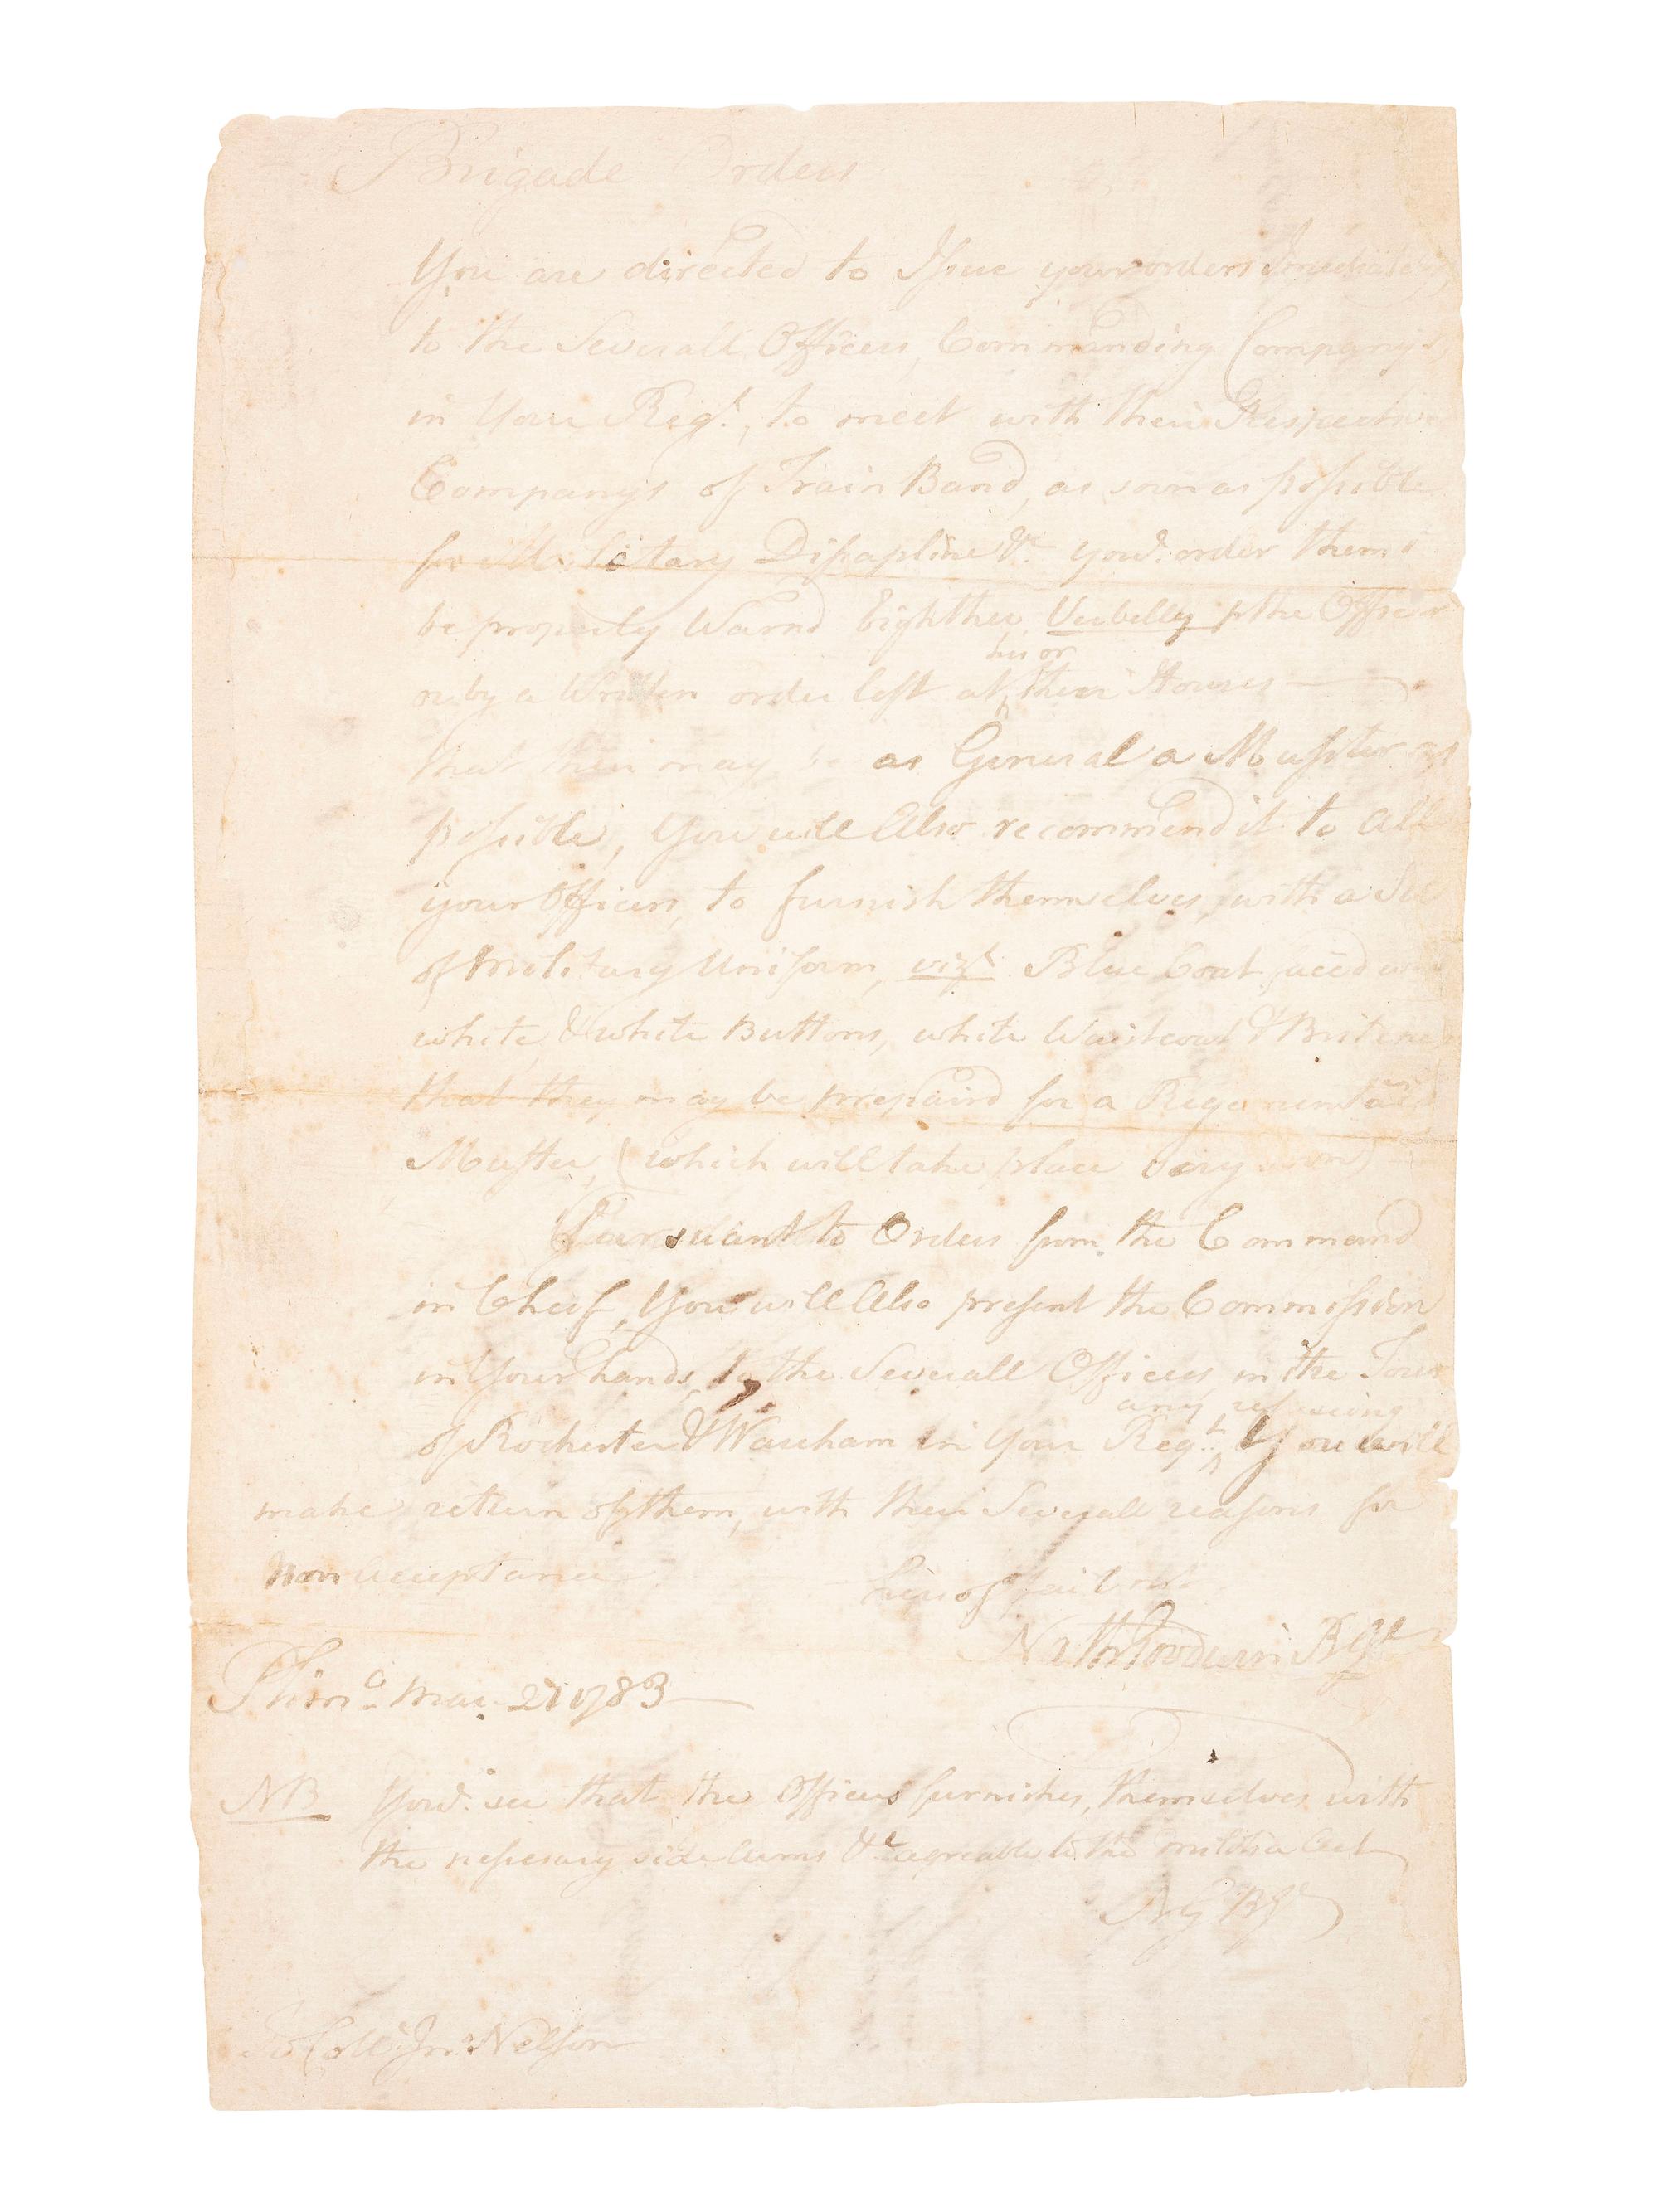 Brigade Orders
You are directed to Issue your orders Imediately
to the Severall Officers Commanding Companys
in Your Regt, to meet with their Respective
Companys of Train Band, as soon as possible
for Millitary Dissapline &c youd order them
be properly Warnd Eighther Verbelly p the Officer
his or
or by a Written order left at their Houses
that their may be as General a Musster as
possible, You will Also recommend it to all
your Officers, to furnish themselves, with a
of military Uniform, vizt Blue Coat faced
white, & white Buttons, white Waistcoat &
that they may be prepaird for a
Muster, (which will take place very soon)
Pursuant to Orders from the Command
in Cheif, You will Also present the Commission
in Your hands, to the Severall Officers in the Town
any refuseing
of Rochester & Wareham in Your Regt You will
make return of them, with their Severall reasons for
Non acceptance
hereof fail not
Nath Goodwin B Gl
Plimo Mar 27 1783
NB Youd see that the Officers furnishes, themselves with
the nessesary side Arms &c agreable to the militia Act
N G B G
To Coll Jno Nelson